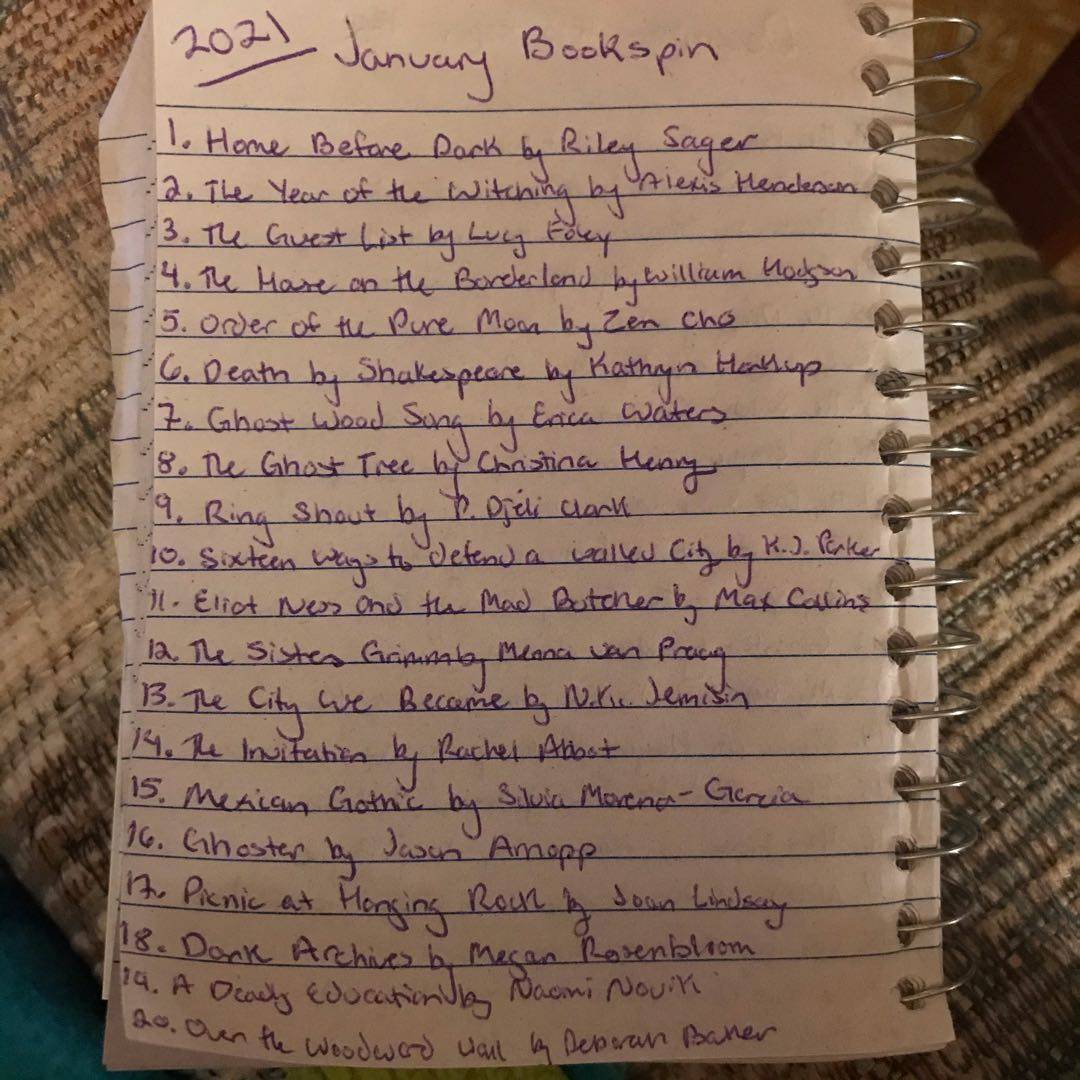 2021 January Bookspin
1. Home Before Dark by Riley Sager
2. The Year of the Witching by Alexis Henderson
3. The Guest List by Lucy Foley
4. The House on the Borderland by William Hodgson
5. Order of the Pure Moon by Zen Cho
6. Death by Shakespeare by Kathryn Harkup
7. Ghost Wood Song by Erica Waters
8. The Ghost Tree by Christina Henry
9. Ring Shout by P. Djèlí Clark
10. Sixteen Ways to Defend a Walled City by K.J. Parker
11. Eliot Ness and the Mad Butcher by Max Collins
12. The Sisters Grimm by Menna van Praag
13. The City We Became by N.K. Jemisin
14. The Invitation by Rachel Abbot
15. Mexican Gothic by Silvia Moreno-Garcia
16. Ghoster by Jason Arnopp
17. Picnic at Hanging Rock by Joan Lindsay
18. Dark Archives by Megan Rosenbloom
19. A Deadly Education by Naomi Novik
20. Over the Woodward Wall by Deborah Baker